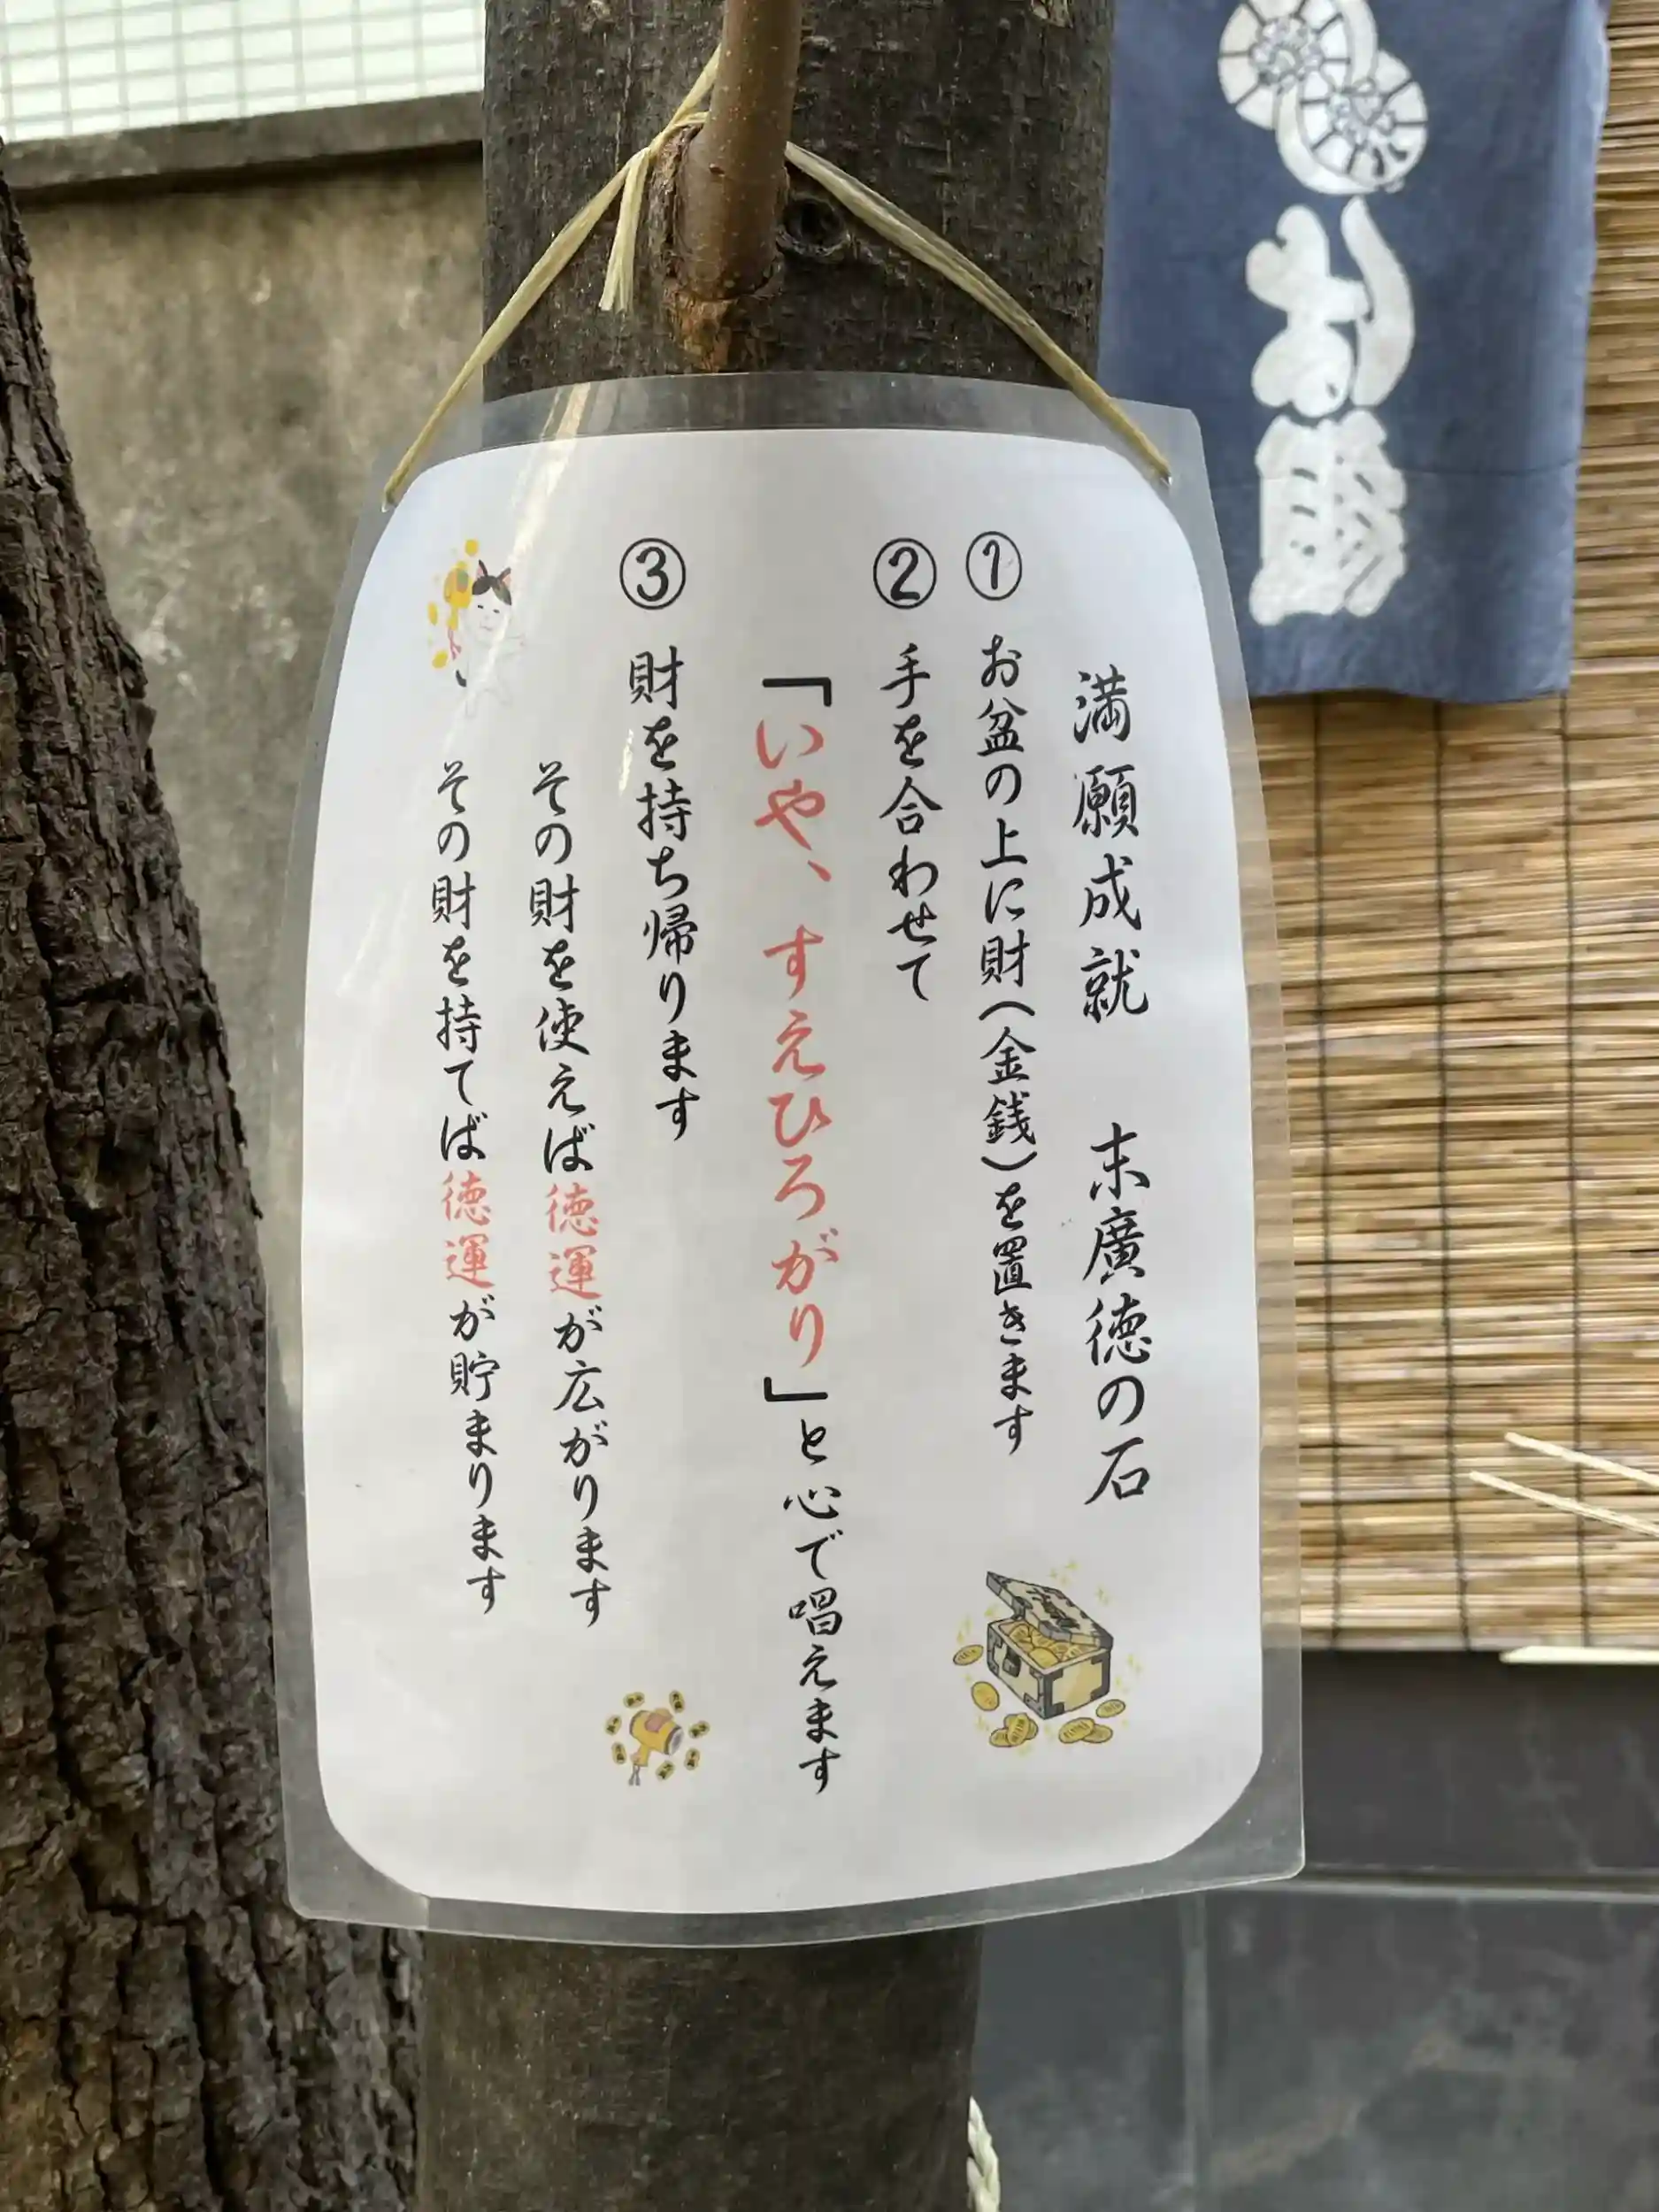 満願成就　末廣徳の石
① お盆の上に財(金銭)を置きます
② 手を合わせて
「いや、すえひろがり」と心で唱えます
③ 財を持ち帰ります
その財を使えば徳運が広がります
その財を持てば徳運が貯まります